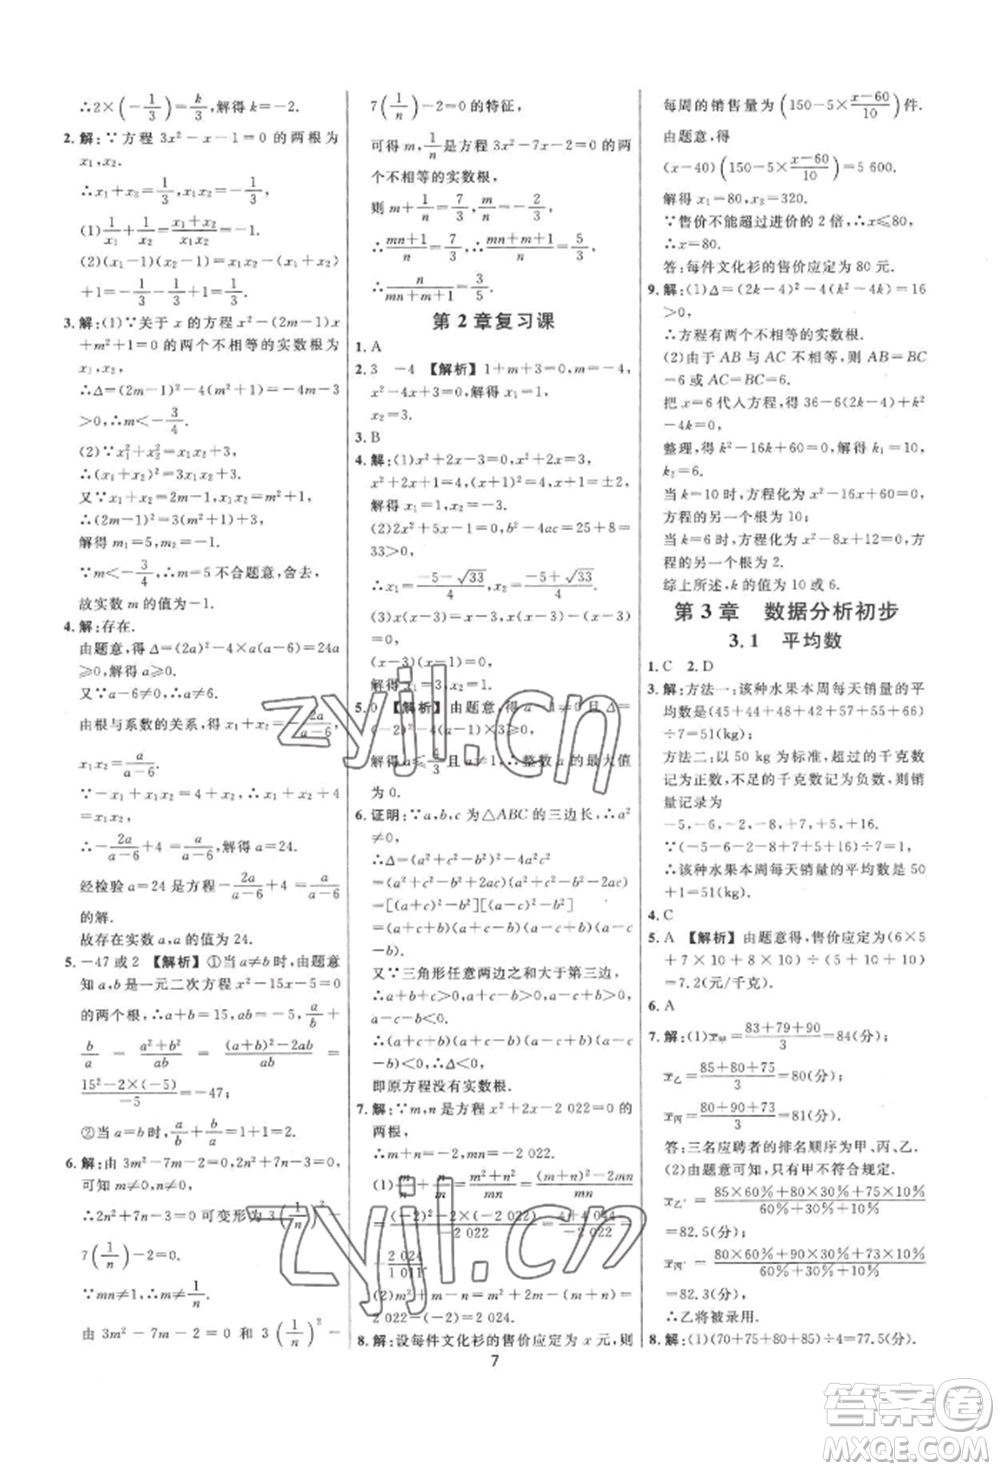 ∴2×(-1/3)=k/3,解得 k=-2.
2. 解:∵方程 3x²-x-1=0 的两根为
x₁,x₂.
∴x₁+x₂=1/3,x₁x₂=-1/3.
(1)1/x₁+1/x₂=(x₁+x₂)/(x₁x₂)=-1.
(2)(x₁-1)(x₂-1)=x₁x₂-(x₁+x₂)
+1=-1/3-1/3+1=1/3.
3. 解:(1)∵关于 x 的方程 x²-(2m-1)x
+m²=0 的两个不相等的实数根为
x₁,x₂,
∴Δ=(2m-1)²-4(m²+1)=-4m-3
>0,∴m<-3/4.
(2)∵x₁²+x₂²=x₁x₂+3,
∴(x₁+x₂)²-2x₁x₂=x₁x₂+3.
又∵x₁+x₂=2m-1,x₁x₂=m²+1,
∴(2m-1)²=3(m²+1)+3,
解得 m₁=5,m₂=-1.
∵m<-3/4,∴m=5 不合题意,舍去,
故实数 m 的值为-1.
4. 解:存在.
由题意,得 Δ=(2a)²-4a(a-6)=24a
≥0,解得 a≥0.
又∵a-6≠0,∴a≠6.
由根与系数的关系,得 x₁+x₂=-2a/(a-6),
x₁x₂=a/(a-6).
∵-x₁+x₁x₂=4+x₂,∴x₁+x₂+4=
x₁x₂.
∴-2a/(a-6)+4=a/(a-6),解得 a=24.
经检验 a=24 是方程-2a/(a-6)+4=a/(a-6)
的解.
故存在实数 a,a 的值为 24.
5. -47 或 2 【解析】①当 a≠b 时,由题意
知 a,b 是一元二次方程 x²-15x-5=0
的两个根,∴a+b=15,ab=-5,∴a/b+
b/a=(a²+b²)/ab=((a+b)²-2ab)/ab=
(15²-2×(-5))/(-5)=-47;
②当 a=b 时,a/b+b/a=1+1=2.
6. 解:由 3m²-7m-2=0,2n²+7n-3=0,
可知 m≠0,n≠0.
∴2n²+7n-3=0 可变形为 3(1/n)²-
7(1/n)-2=0.
∵mn≠1,∴m≠1/n.
由 3m²-7m-2=0 和 3(1/n)²-
7(1/n)-2=0 的特征,
可得 m,1/n 是方程 3x²-7x-2=0 的两
个不相等的实数根,
则 m+1/n=7/3,m/n=-2/3.
∴(mn+1)/n=7/3,
∴n/(mn+m+1)=3/5.
第 2 章复习课
1. A
2. 3 -4 【解析】1+m+3=0,m=-4,
x²-4x+3=0,解得 x₁=1,
x₂=3.
3. B
4. 解:(1)x²+2x-3=0,x²+2x=3,
x²+2x+1=4,(x+1)²=4,x+1=±2,
解得 x₁=1,x₂=-3.
(2)2x²+5x-1=0,b²-4ac=25+8=
33>0,
∴x₁=(-5-√33)/4,x₂=(-5+√33)/4.
(3)(x-3)(x-1)=0,
解得 x₁=3,x₂=1.
5. 0 【解析】由题意,得 a-1≠0 且 Δ=
(-2)²-4(a-1)×3≥0,
解得 a≤4/3 且 a≠1.∴整数 a 的最大值
为 0.
6. 证明:∵a,b,c 为△ABC 的三边长,∴a²
≠0,
∴Δ=(a²+c²-b²)²-4a²c²
=(a²+c²-b²+2ac)(a²+c²-b²-2ac)
=[(a+c)²-b²][(a-c)²-b²]
=(a+c+b)(a+c-b)(a-c+b)
(a-c-b).
又∵三角形任意两边之和大于第三边,
∴a+b+c>0,a+c-b>0,a-c+b
>0,a-c-b<0,
∴(a+c+b)(a+c-b)(a-c+b)
(a-c-b)<0,∴Δ<0,
即原方程没有实数根.
7. 解:∵m,n 是方程 x²+2x-2 022=0 的
两根,
∴m+n=-2,mn=-2 022.
(1)n/m+m/n=(m²+n²)/mn=((m+n)²-2mn)/mn
=((-2)²-2×(-2 022))/(-2 022)=(4+4 044)/(-2 022)=
-2 024/1 011.
(2)m²+2m-n=m²+m-(m+n)=
8. 解:设每件文化衫的售价应定为 x 元,则
每周的销售量为(150-5×(x-60)/10)件.
由题意,得
(x-40)(150-5×(x-60)/10)=5 600.
解得 x₁=80,x₂=320.
∵售价不能超过进价的 2 倍,∴x≤80.
∴x=80.
答:每件文化衫的售价应定为 80 元.
9. 解:(1)Δ=(2k-4)²-4(k²-4k)=16
>0,
∴方程有两个不相等的实数根.
(2)由于 AB 与 AC 不相等,故 AB=BC
=6 或 AC=BC=6.
把 x=6 代入方程,得 36-6(2k-4)+k²
-4k=0,
整理,得 k²-16k+60=0,解得 k₁=10,
k₂=6.
当 k=10 时,方程化为 x²-16x+60=0,
方程的另一个根为 10;
当 k=6 时,方程化为 x²-8x+12=0,
方程的另一个根为 2.
综上所述,k 的值为 10 或 6.
第 3 章 数据分析初步
3.1 平均数
1. C 2. D
3. 解:方法一:该种水果本周每天销量的平
均数是(45+44+48+42+57+55+66)
÷7=51(kg).
方法二:以 50 kg 为标准,超过的千克数
记为正数,不足的千克数记为负数,则销
量记录为
-5,-6,-2,-8,+7,+5,+16.
∵(-5-6-2-8+7+5+16)÷7=1.
∴该种水果本周每天销量的平均数是 50
+1=51(kg).
4. C
5. A 【解析】由题意得,售价应定为(6×5
+7×10+8×10)÷(5+10+10)
=7.2(元/千克).
6. A
7. 解:(1)x̄甲=(83+79+90)/3=84(分),
x̄乙=(85+80+75)/3=80(分),
x̄丙=(80+90+73)/3=81(分).
答:三名应聘者的排名顺序为甲、丙、乙.
(2)由题意可知,甲不符合规定.
x̄乙′=(85×60%+80×30%+75×10%)/(60%+30%+10%)
=82.5(分),
x̄丙′=(80×60%+90×30%+73×10%)/(60%+30%+10%)
=82.3(分).
∴乙将被录用.
8. 解:(1)(70+75+85+80)÷4=77.5(分).
7
zyjl.cn
zyjl.cn
答案圈
MXQE.COM